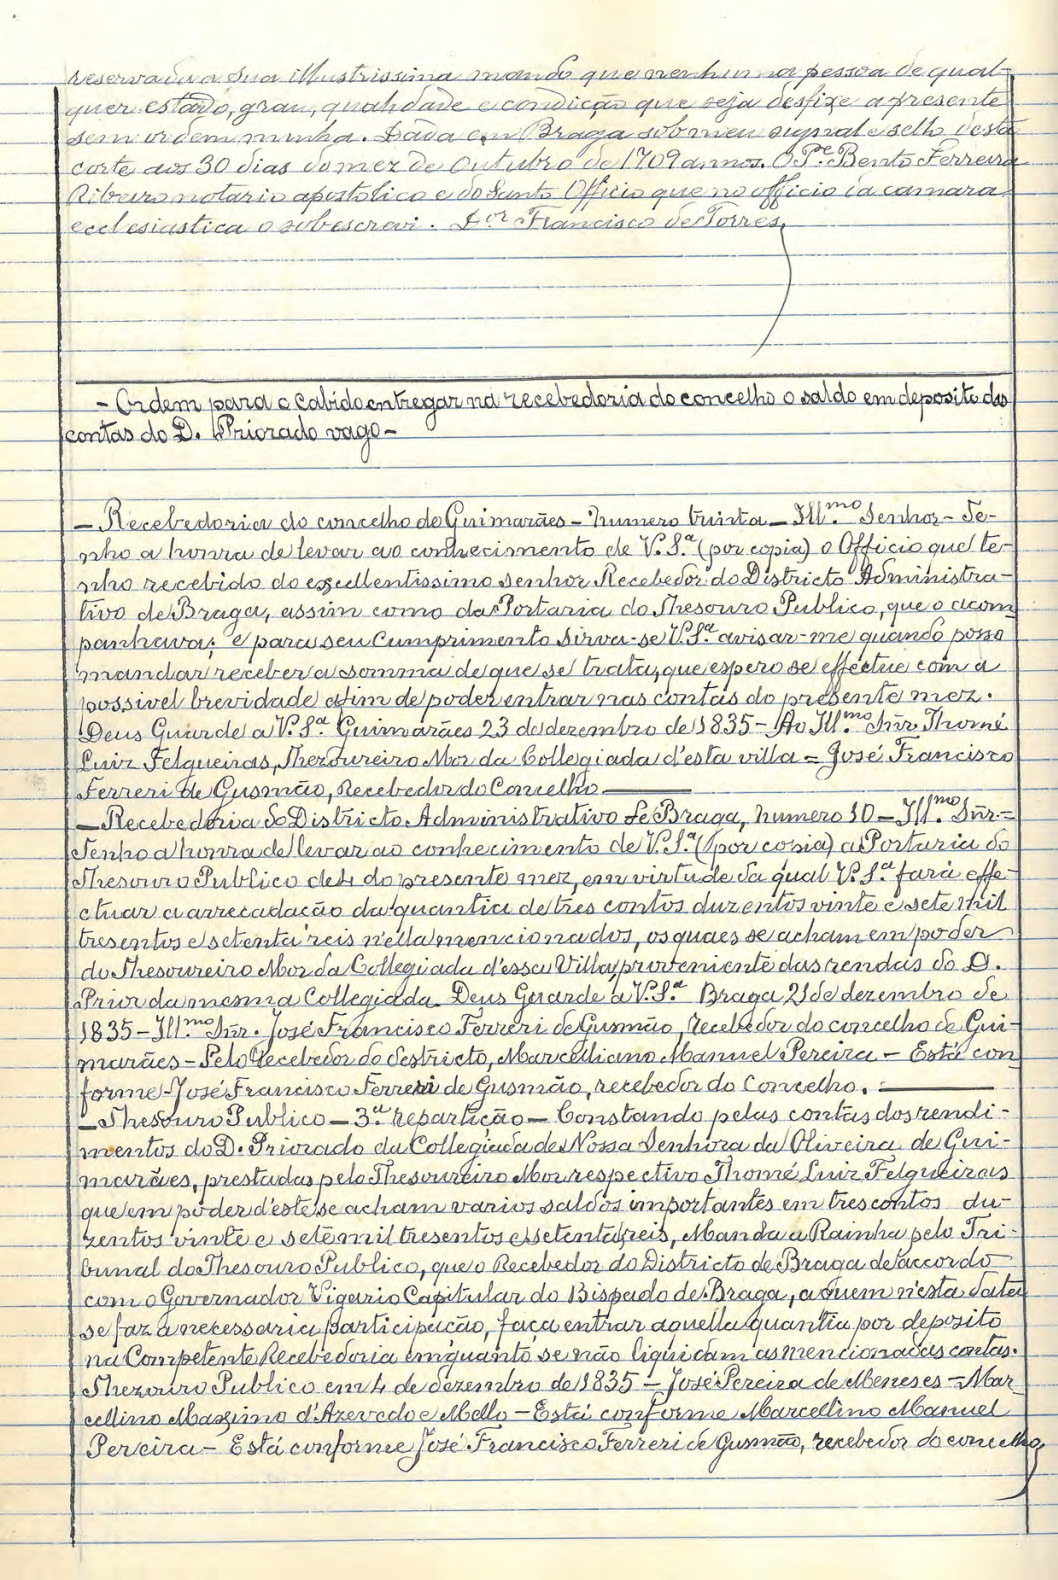 reservada a Sua illustrissima mando que nenhuma pessoa de qual-
quer estado, grau, qualidade e condição que seja desfixe a presente
sem ordem minha. Dada em Braga sob meu signal e sello desta
corte aos 30 dias do mez de Outubro de 1709 annos. O Pe. Bento Ferreira
Ribeiro notario apostolico e do Santo Officio que no officio da camara
ecclesiastica o sobescrevi. Dor Francisco de Torres,
- Ordem para o Cabido entregar na recebedoria do concelho o saldo em deposito das
contas do D. Priorado vago -
- Recebedoria do concelho de Guimarães - Numero trinta - Illmo. Senhor - Te-
nho a honra de levar ao conhecimento de V. S.a (por copia) o Officio que te-
nho recebido do excellentissimo senhor Recebedor do Districto Administra-
tivo de Braga, assim como da Portaria do Thesouro Publico, que o acom-
panhava; e para seu cumprimento sirva-se V. S.a avisar-me quando posso
mandar receber a somma de que se trata, que espero se effectue com a
possivel brevidade afim de poder entrar nas contas do presente mez.
Deus Guarde a V. S.a Guimarães 23 de dezembro de 1835 - Ao Illmo. Snr. Thomé
Luiz Felgueiras, Thezoureiro Mor da Collegiada d'esta villa = José Francisco
Ferreri de Gusmão, Recebedor do Concelho
- Recebedoria do Districto Administrativo de Braga, numero 10 - Illmo. Snr. =
Tenho a honra de levar ao conhecimento de V. S.a (por copia) a Portaria do
Thesouro Publico de 4 do presente mez, em virtude da qual V. S.a fará effe-
ctuar a arrecadação da quantia de tres contos duzentos vinte e sete mil
tresentos e setenta reis n'ella mencionados, os quaes se acham em poder
do Thesoureiro Mor da Collegiada d'essa Villa, proveniente das rendas do D.
Prior da mesma Collegiada. Deus Guarde a V. S.a Braga 21 de dezembro de
1835 - Illmo Snr. José Francisco Ferreri de Gusmão, Recebedor do concelho de Gui-
marães - Pelo Recebedor do destricto, Marcelliano Manuel Pereira - Está con
forme - José Francisco Ferreri de Gusmão, recebedor do Concelho.
- Thesouro Publico - 3.a repartição - Constando pelas contas dos rendi-
mentos do D. Priorado da Collegiada de Nossa Senhora da Oliveira de Gui-
marães, prestadas pelo Thesoureiro Mor respectivo Thomé Luiz Felgueiras
que em poder d'este se acham varios saldos importantes em tres contos du-
zentos vinte e sete mil tresentos e setenta reis, Manda a Rainha pelo Tri-
bunal do Thesouro Publico, que o Recebedor do Districto de Braga de accordo
com o Governador Vigario Capitular do Bispado de Braga, a quem n'esta data
se faz a necessaria participação, faça entrar aquella quantia por deposito
na Competente Recebedoria emquanto se não liquidam as mencionadas contas.
Thezouro Publico em 4 de dezembro de 1835 - José Pereira de Meneses = Mar-
cellino Maximo d'Azevedo e Mello - Está conforme Marcellino Manuel
Pereira - Está conforme José Francisco Ferreri de Gusmão, recebedor do concelho,